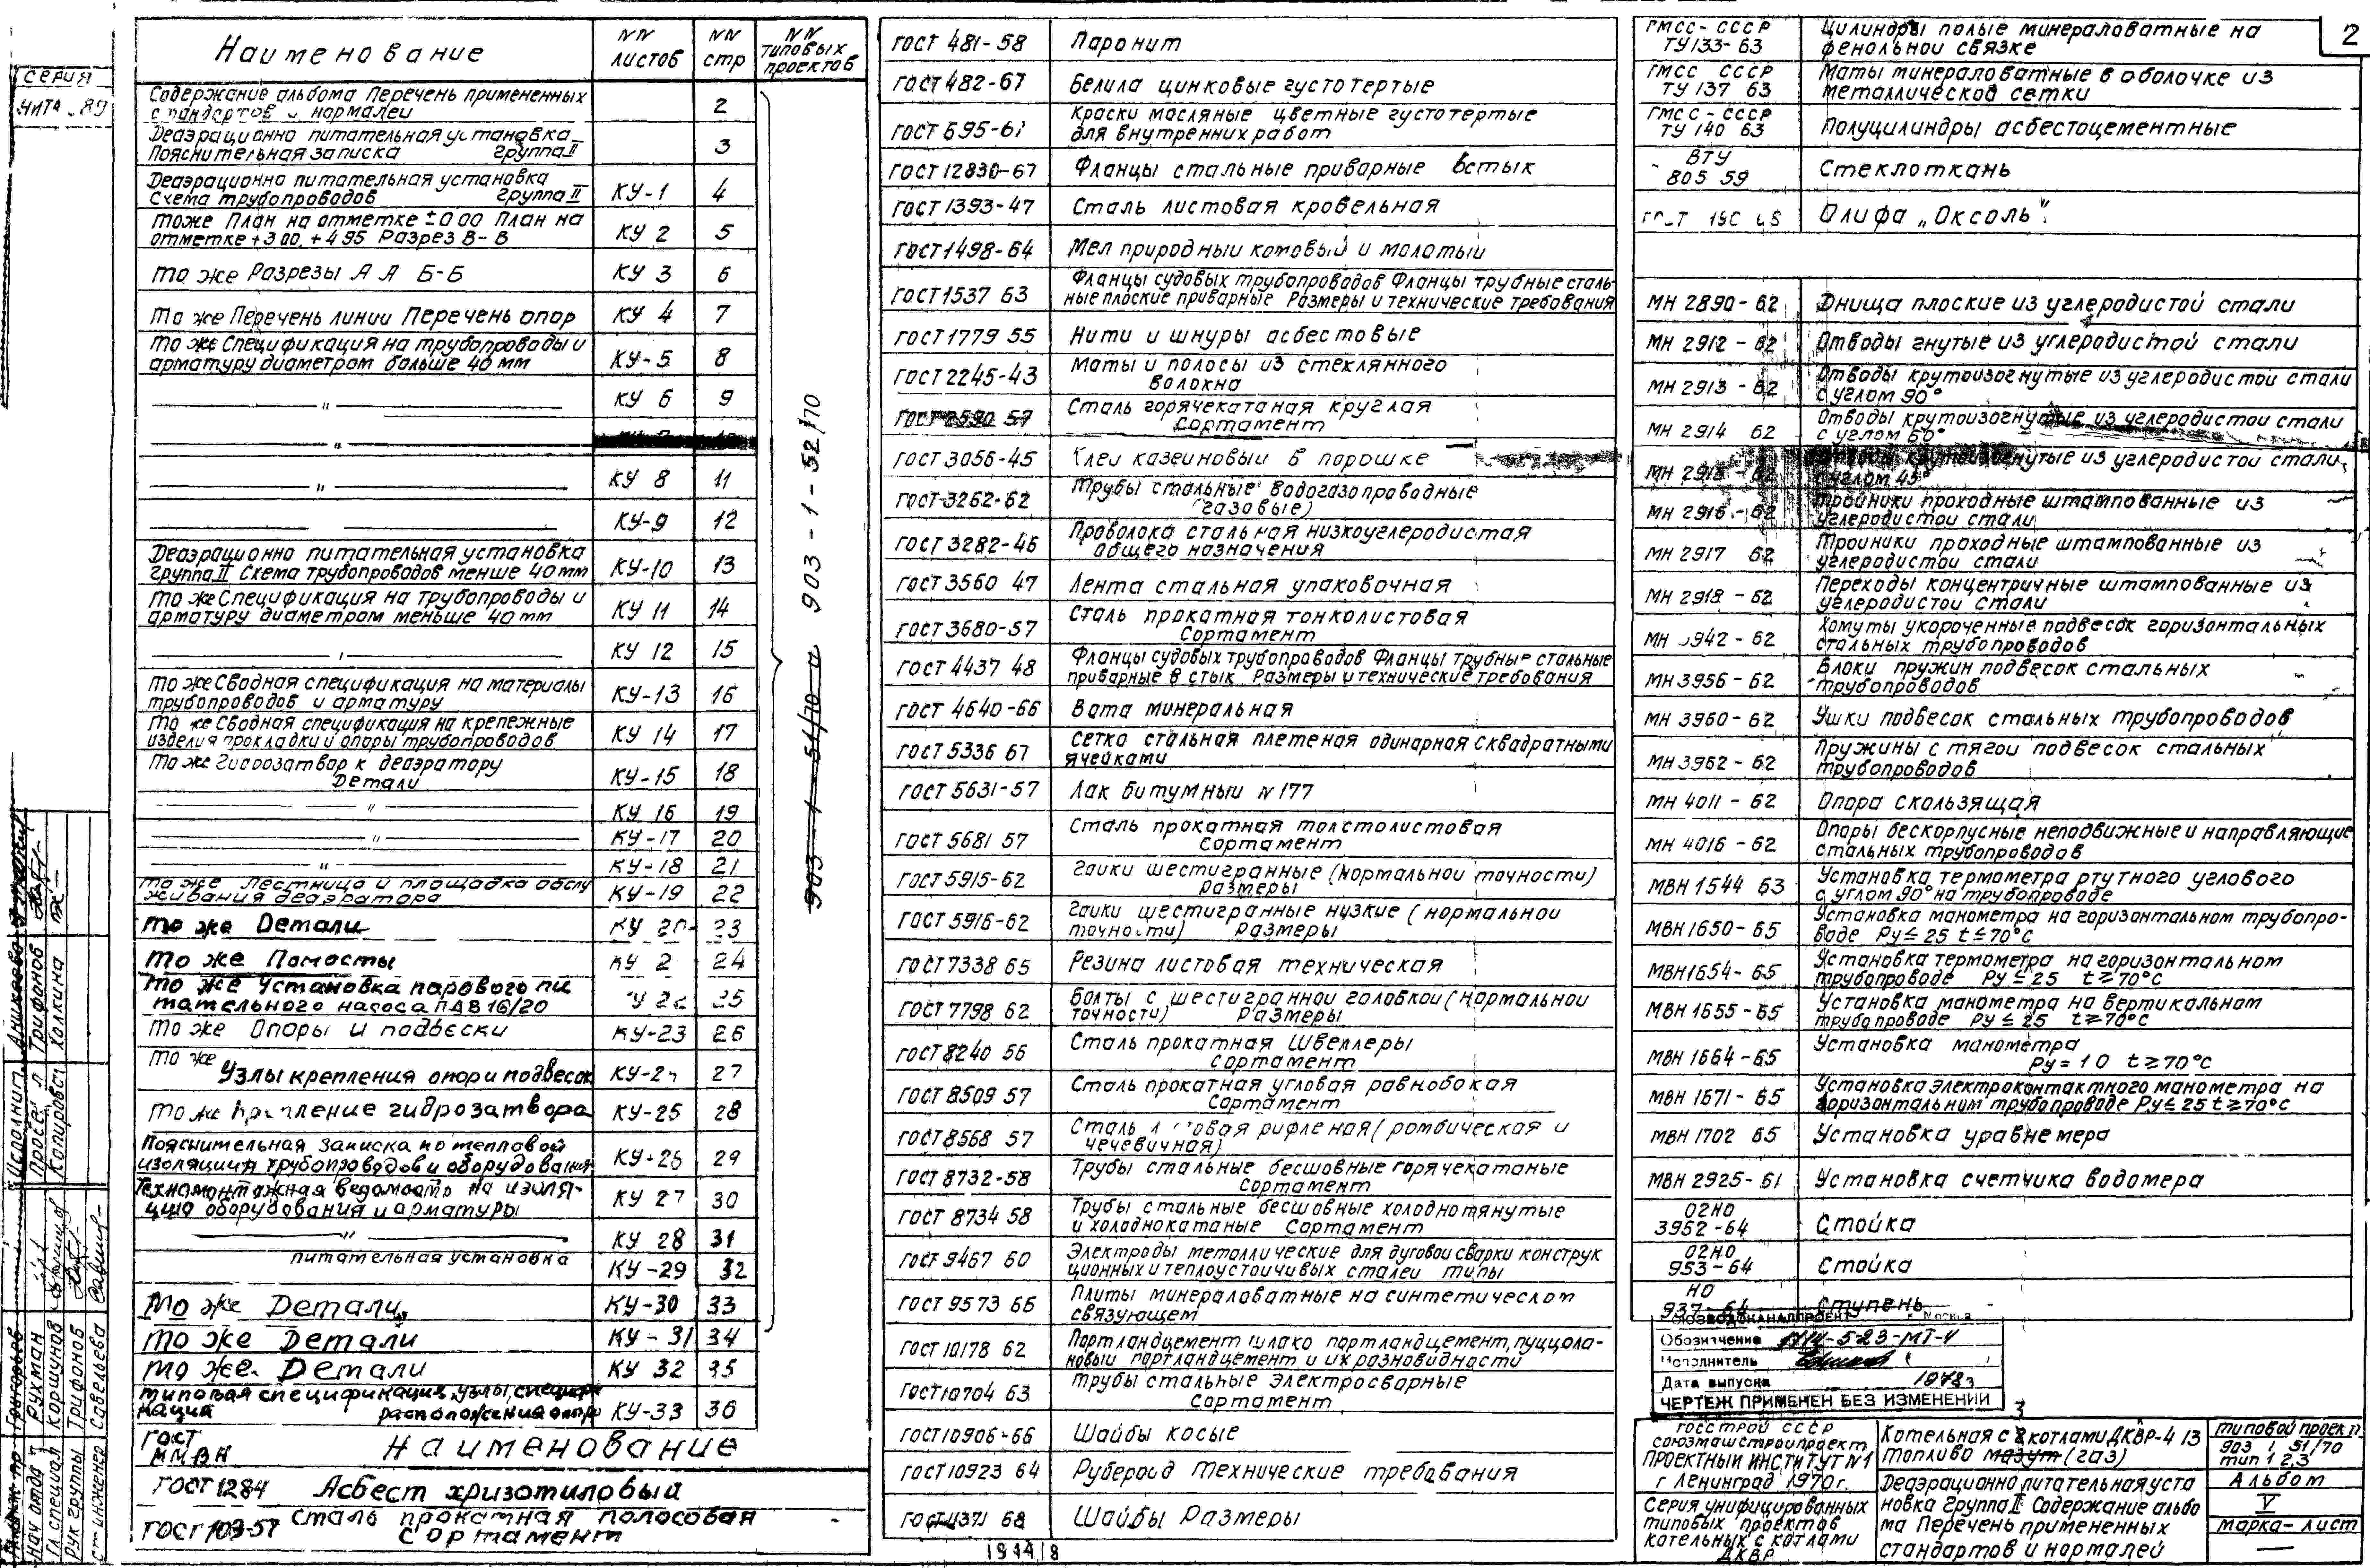 серия
Наименование
NN листов
NN стр
NN типовых проектов
Содержание альбома Перечень примененных
стандартов и нормалей 2
Деаэрационно питательная установка
Пояснительная записка группа II 3
Деаэрационно питательная установка
Схема трубопроводов группа II КУ-1 4
тоже План на отметке ±0 00 План на
отметке +3 00, +4 95 Разрез В-В КУ 2 5
то же Разрезы А А Б-Б КУ 3 6
то же Перечень линии Перечень опор КУ 4 7
то же Спецификация на трубопроводы и
арматуру диаметром больше 40 мм КУ-5 8
" КУ 6 9
"
" КУ 8 11
КУ-9 12
Деаэрационно питательная установка
группа II Схема трубопроводов менше 40 мм КУ-10 13
то же Спецификация на трубопроводы и
арматуру диаметром меньше 40 mm КУ 11 14
КУ 12 15
то же Сводная спецификация на материалы
трубопроводов и арматуру КУ-13 16
то же Сводная спецификация на крепежные
изделия прокладки и опоры трубопроводов КУ 14 17
то же Гидрозатвор к деаэратору
Детали КУ-15 18
" КУ 16 19
" КУ-17 20
" КУ-18 21
то же Лестница и площадка обслу
живания деаэратора КУ-19 22
то же Детали КУ 20 23
то же Помосты КУ 2 24
то же Установка парового пи
тательного насоса ПДВ 16/20 25
то же Опоры и подвески КУ-23 26
то же
Узлы крепления опор и подвесок КУ-2 27
то же Крепление гидрозатвора КУ-25 28
Пояснительная записка по тепловой
изоляции трубопроводов и оборудования КУ-26 29
Техномонтажная ведомость на изоля-
цию оборудования и арматуры КУ 27 30
" КУ 28 31
питательная установка КУ-29 32
то же Детали КУ-30 33
то же Детали КУ-31 34
то же. Детали КУ 32 35
типовая спецификация, узлы, специфи
кация расположения опор КУ-33 36
903-1-51/70 и 903-1-52/70
ГОСТ
ММВН Наименование
ГОСТ 1284 Асбест хризотиловый
ГОСТ 103-57 Сталь прокатная полосовая
Сортамент
ГОСТ 481-58 Паронит
ГОСТ 482-67 Белила цинковые густотертые
ГОСТ 695-67 Краски масляные цветные густотертые
для внутренних работ
ГОСТ 12830-67 Фланцы стальные приварные встык
ГОСТ 1393-47 Сталь листовая кровельная
ГОСТ 1498-64 Мел природный комовый и молотый
ГОСТ 1537 63 Фланцы судовых трубопроводов Фланцы трубные сталь-
ные плоские приварные Размеры и технические требования
ГОСТ 1779 55 Нити и шнуры асбестовые
ГОСТ 2245-43 Маты и полосы из стеклянного
волокна
ГОСТ 2590 57 Сталь горячекатаная круглая
Сортамент
ГОСТ 3056-45 Клеи казеиновый в порошке
ГОСТ-3262-62 Трубы стальные водогазопроводные
(газовые)
ГОСТ 3282-46 Проволока стальная низкоуглеродистая
общего назначения
ГОСТ 3560 47 Лента стальная упаковочная
ГОСТ 3680-57 Сталь прокатная тонколистовая
Сортамент
ГОСТ 4437 48 Фланцы судовых трубопроводов Фланцы трубные стальные
приварные в стык Размеры и технические требования
ГОСТ 4640-66 Вата минеральная
ГОСТ 5336 67 Сетка стальная плетеная одинарная с квадратными
ячейками
ГОСТ 5631-57 Лак битумный N 177
ГОСТ 5681 57 Сталь прокатная толстолистовая
Сортамент
ГОСТ 5915-62 Гайки шестигранные (нормальной точности)
Размеры
ГОСТ 5916-62 Гайки шестигранные низкие (нормальной
точности) Размеры
ГОСТ 7338 65 Резина листовая техническая
ГОСТ 7798 62 Болты с шестигранной головкой (нормальной
точности) Размеры
ГОСТ 8240 56 Сталь прокатная Швеллеры
Сортамент
ГОСТ 8509 57 Сталь прокатная угловая равнобокая
Сортамент
ГОСТ 8568 57 Сталь листовая рифленая (ромбическая и
чечевичная)
ГОСТ 8732-58 Трубы стальные бесшовные горячекатаные
Сортамент
ГОСТ 8734 58 Трубы стальные бесшовные холоднотянутые
и холоднокатаные Сортамент
ГОСТ 9467 60 Электроды металлические для дуговой сварки конструк
ционных и теплоустойчивых сталей типы
ГОСТ 9573 66 Плиты минераловатные на синтетическом
связующем
ГОСТ 10178 62 Портландцемент шлако портландцемент, пуццола-
новый портландцемент и их разновидности
ГОСТ 10704 63 Трубы стальные электросварные
Сортамент
ГОСТ 10906-66 Шайбы косые
ГОСТ 10923 64 Рубероид Технические требования
ГОСТ 11371 68 Шайбы Размеры
1944/8
2
ГМСС-СССР
ТУ 133-63 Цилиндры полые минераловатные на
фенольной связке
ГМСС СССР
ТУ 137 63 Маты минераловатные в оболочке из
металлической сетки
ГМСС-СССР
ТУ 140 63 Полуцилиндры асбестоцементные
ВТУ
805 59 Стеклоткань
Олифа „Оксоль".
МН 2890-62 Днища плоские из углеродистой стали
МН 2912-62 Отводы гнутые из углеродистой стали
МН 2913-62 Отводы крутоизогнутые из углеродистой стали
с углом 90°
МН 2914 62 Отводы крутоизогнутые из углеродистой стали
с углом 60°
МН 2915-62 Отводы крутоизогнутые из углеродистой стали
с углом 45°
МН 2916-62 Тройники проходные штампованные из
углеродистой стали
МН 2917 62 Тройники проходные штампованные из
углеродистой стали
МН 2918-62 Переходы концентричные штампованные из
углеродистой стали
МН 3942-62 Хомуты укороченные подвесок горизонтальных
стальных трубопроводов
МН 3956-62 Блоки пружин подвесок стальных
трубопроводов
МН 3960-62 Ушки подвесок стальных трубопроводов
МН 3962-62 Пружины с тягой подвесок стальных
трубопроводов
МН 4011-62 Опора скользящая
МН 4016-62 Опоры бескорпусные неподвижные и направляющие
стальных трубопроводов
МВН 1544 63 Установка термометра ртутного углового
с углом 90° на трубопроводе
МВН 1650-65 Установка манометра на горизонтальном трубопро-
воде Ру≤25 t≤70°С
МВН 1654-65 Установка термометра на горизонтальном
трубопроводе Ру≤25 t≥70°С
МВН 1655-65 Установка манометра на вертикальном
трубопроводе Ру≤25 t≥70°С
МВН 1664-65 Установка манометра
Ру=10 t≥70°С
МВН 1671-65 Установка электроконтактного манометра на
горизонтальном трубопроводе Ру≤25 t≥70°С
МВН 1702 65 Установка уравнемера
МВН 2925-61 Установка счетчика водомера
02НО
3952-64 Стойка
02НО
953-64 Стойка
НО
937-64 Ступень
СОЮЗВОДОКАНАЛПРОЕКТ г. Москва
Обозначение М14-523-МТ-4
Исполнитель
Дата выпуска 1978
ЧЕРТЕЖ ПРИМЕНЕН БЕЗ ИЗМЕНЕНИЙ
3
Госстрой СССР
Союзмашстройпроект
ПРОЕКТНЫЙ ИНСТИТУТ N1
г Ленинград 1970г.
Серия унифицированных
типовых проектов
котельных с котлами
ДКВР
Котельная с 2 котлами ДКВР-4 13
топливо мазут (газ)
Деаэрационно питательная уста
новка группа II Содержание альбо
ма Перечень примененных
стандартов и нормалей
типовой проект
903 1 51/70
тип 1 2,3
Альбом
V
марка-лист
Исполнит. Аникеева
Провер л Трифонов
Копировал Халкина
Нач отд Рухман
Гл специал Коршунов
Рук группы Трифонов
ст инженер Савельева